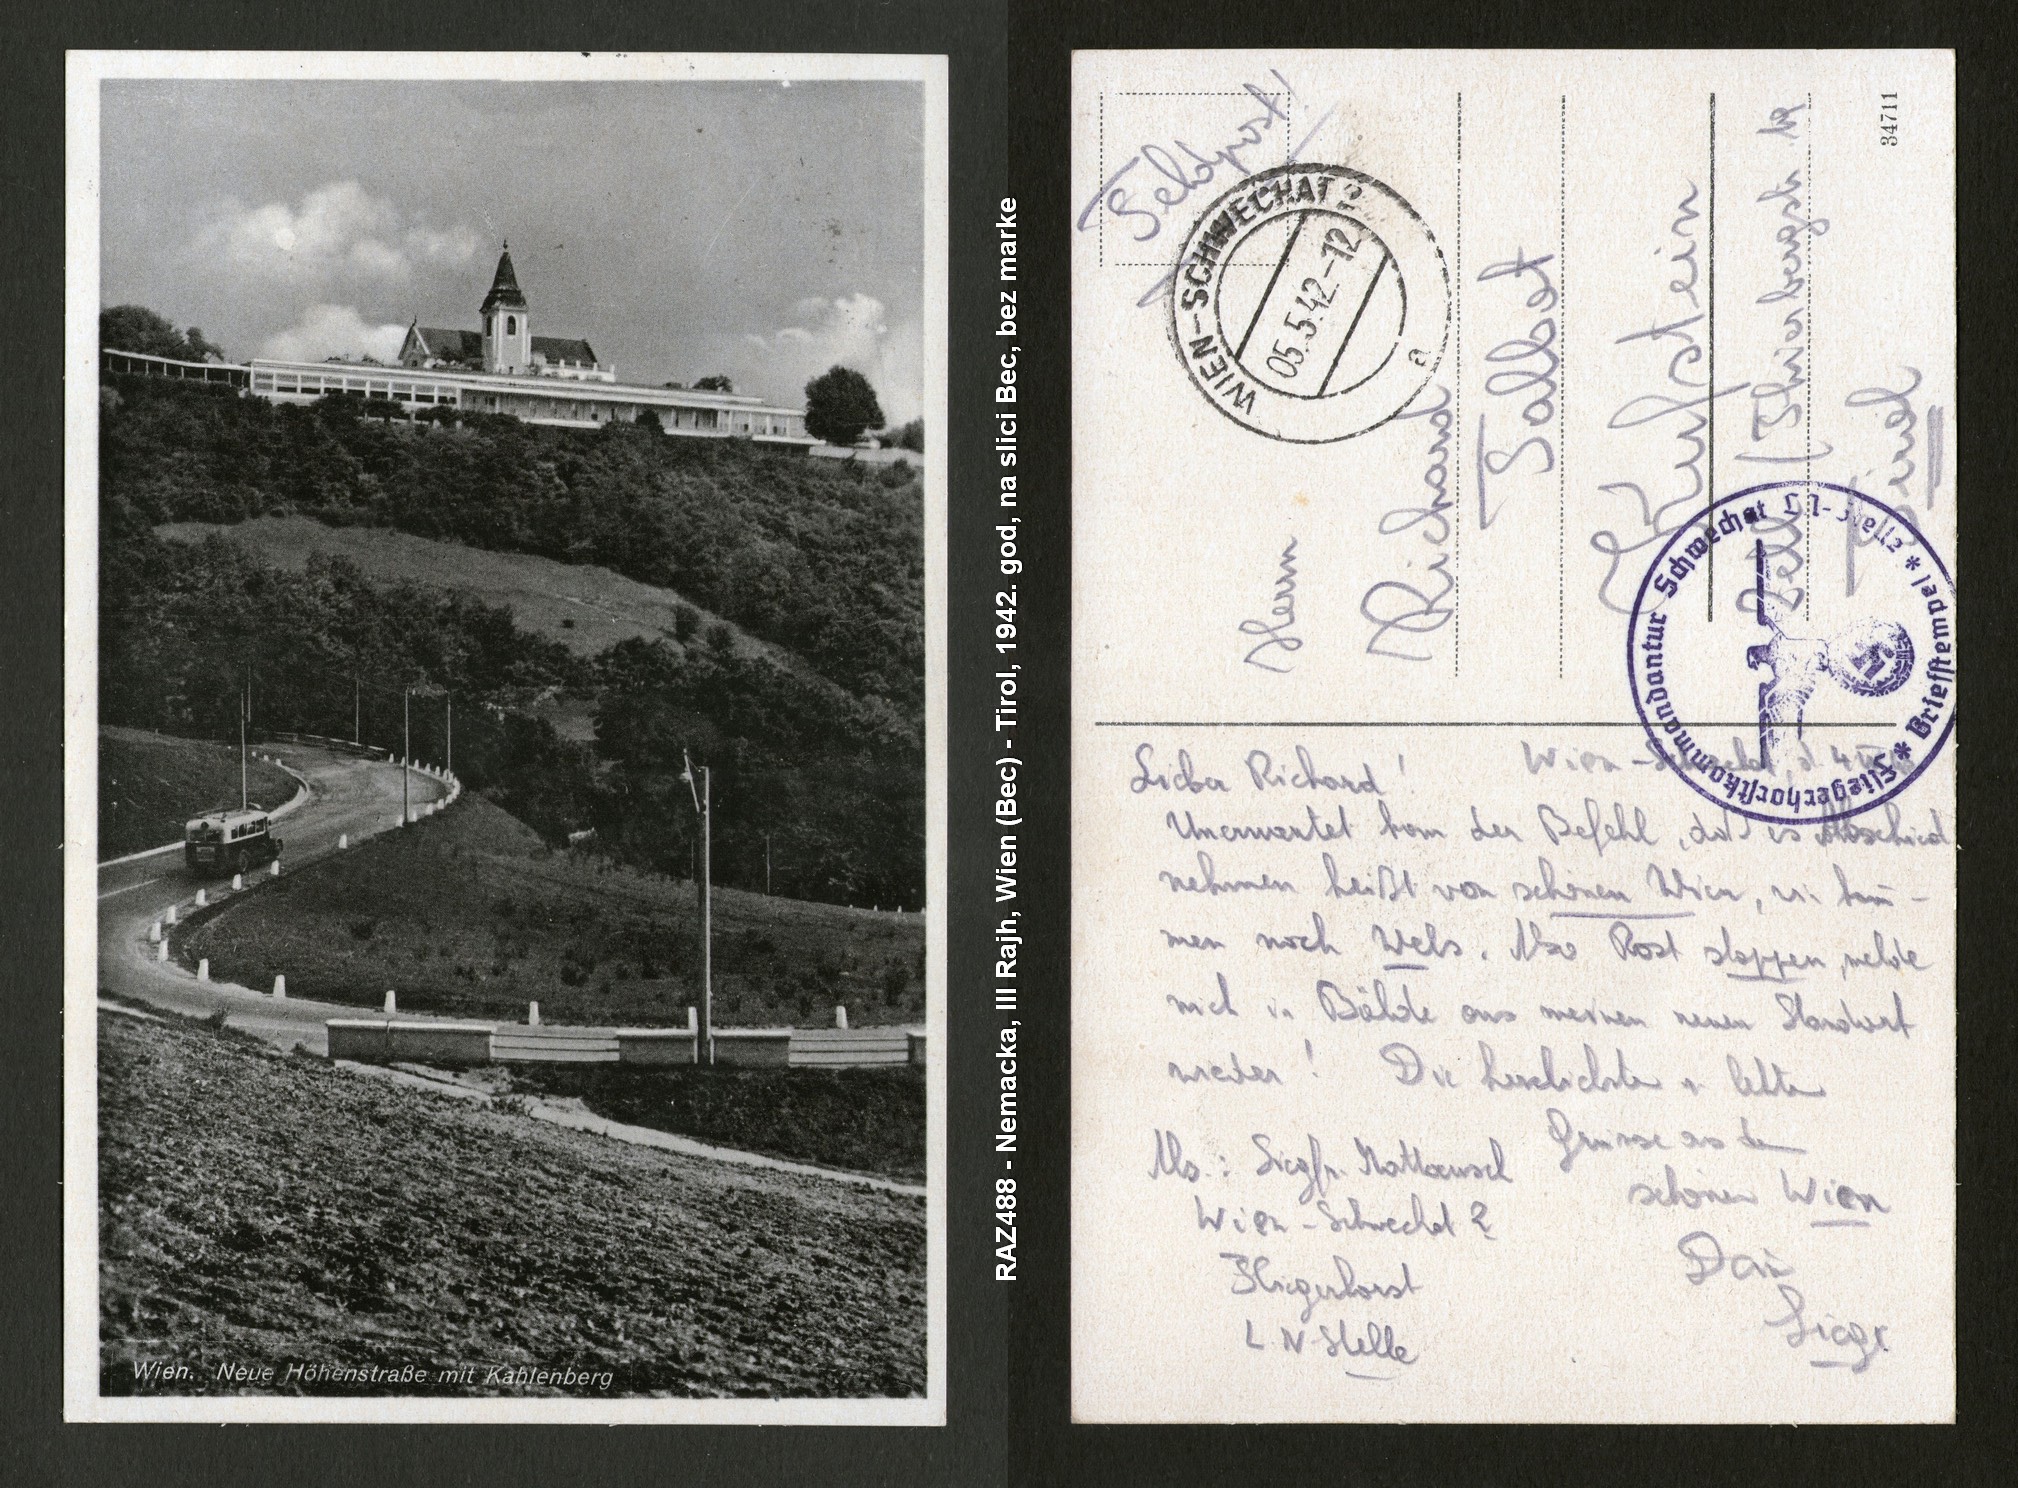 Wien. Neue Höhenstraße mit Kahlenberg
RAZ488 - Nemacka, III Rajh, Wien (Bec) - Tirol, 1942. god, na slici Bec, bez marke
Feldpost!
WIEN-SCHWECHAT 2
05.5.42-12
a
34711
Herrn
Richard
Talbot
Kufstein
Zell (Thierbergstr. 19
Tirol
Fliegerhorstkommandantur Schwechat LN-Stelle * Briefstempel *
Wien-Schwechat, d. 4.
Lieber Richard!
Unerwartet kam der Befehl, daß es Abschied
nehmen heißt von schönen Wien, wir kom-
men nach Wels. Also Post stoppen, melde
mich in Bälde aus meinen neuen Standort
wieder! Die herzlichsten u. letzten
Grüsse aus dem
schönen Wien
Dein
Siegfr.
Abs.: Siegfr.
Wien-Schwechat 2
Fliegerhorst
LN-Stelle